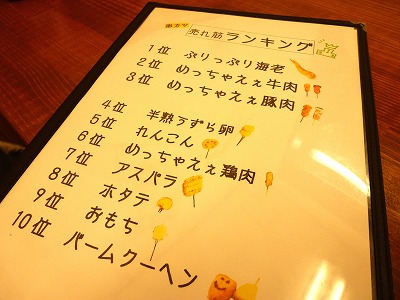 串カツ
売れ筋ランキング
1位 ぷりっぷり海老
2位 めっちゃえぇ牛肉
3位 めっちゃえぇ豚肉
4位 半熟うずら卵
5位 れんこん
6位 めっちゃえぇ鶏肉
7位 アスパラ
8位 ホタテ
9位 おもち
10位 バームクーヘン